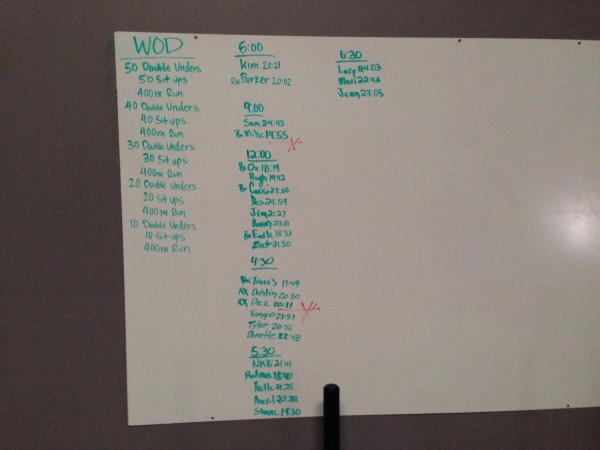 WOD
50 Double Unders
50 Sit ups
400m Run
40 Double Unders
40 Sit ups
400m Run
30 Double Unders
30 Sit ups
400m Run
20 Double Unders
20 Sit ups
400m Run
10 Double Unders
10 Sit ups
400m Run
6:00
Kim 20:21
Rx Parker 20:02
9:00
Sam 24:43
Rx Mike 19:55
12:00
Rx Ox 18:19
Hugh 19:42
Rx
Des 24:59
Jim 21:27
23:10
Rx 18:32
Zach 21:30
4:30
Rx Travis 17:49
RX Dustin 20:30
RX Dez 20:11
21:51
Tyler 20:56
Danette 22:48
5:30
Nikki 21:41
Rx Amos 18:40
21:25
20:28
19:30
6:30
24:03
22:48
Jean 23:05